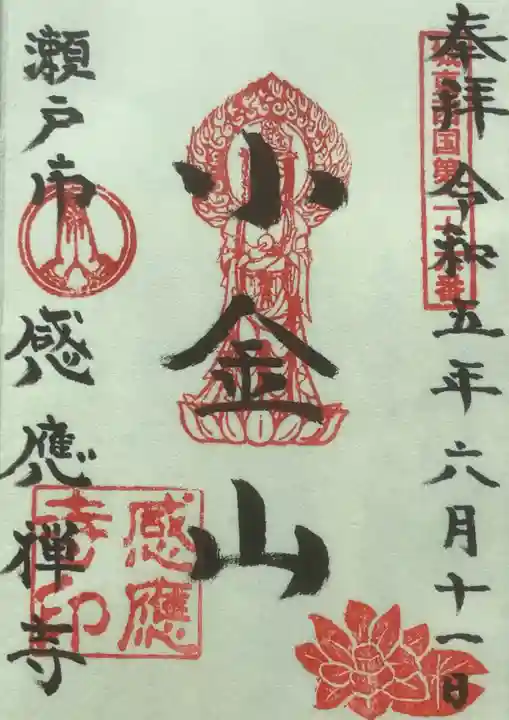 奉拝 令和五年六月十一日
小金山
瀬戸市 感應禅寺
感應
寺印